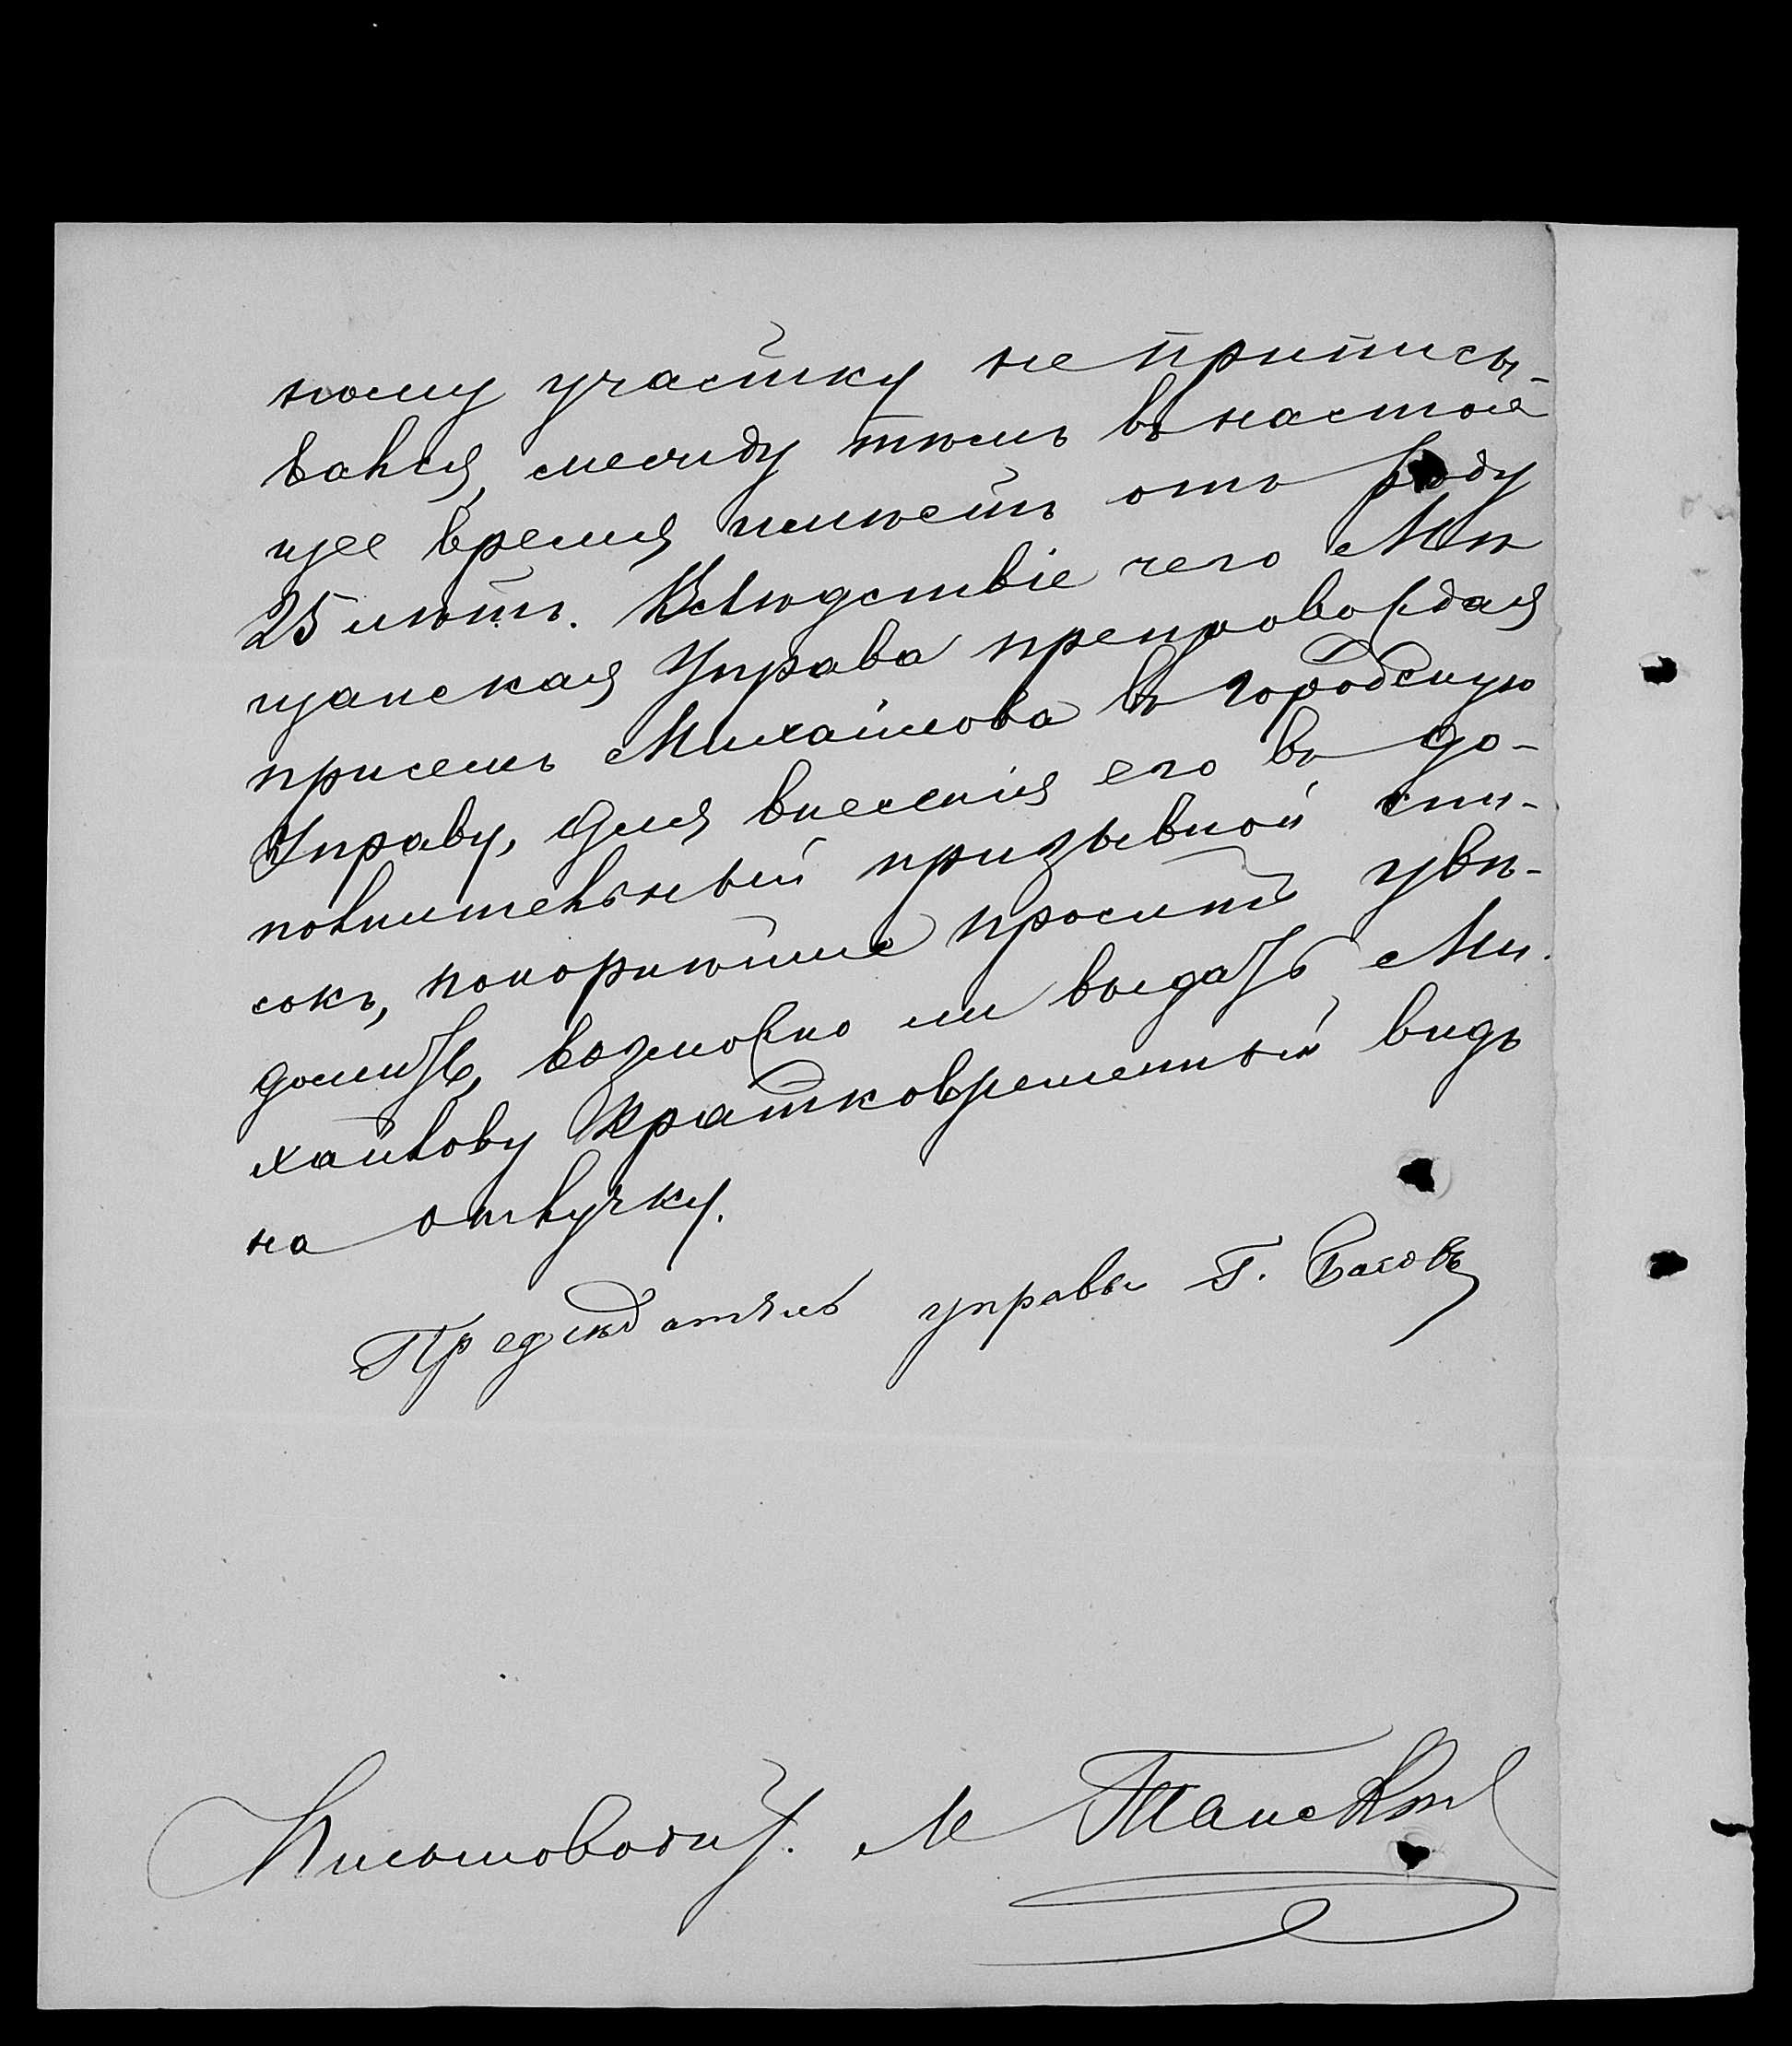 ному участку не приписы-
вался, между тѣмъ въ настоя
щее время имѣетъ отъ роду
25 лѣтъ. Вслѣдствіе чего Мѣ
щанская Управа препровождая
присемъ Михайлова въ Городскую
Управу, для внесенія его въ до-
полнительный призывной спи-
сокъ, покорнѣйше проситъ увѣ-
домить, возможно ли выдать Ми-
хайлову кратковременный видъ
на отлучку.
Предсѣдатель управы Г. Басовъ
Письмоводит. М